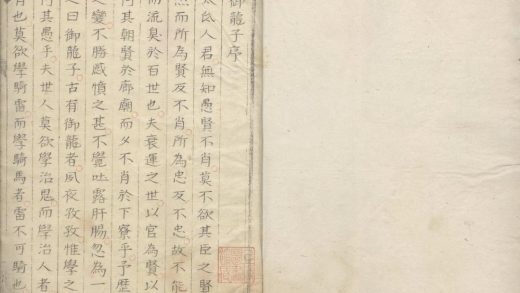 御龍子序
太氐人君無知愚賢不肖莫不欲其臣之賢
然而所為賢反不肖所為忠反不忠故不能
而流臭於百世也夫衰運之世以官為賢以
何其朝賢於廊廟而夕不肖於下寮乎予歷
之變不勝感憤之甚不覺吐露肝腸忽為一
之曰御龍子古有御龍者夙夜孜孜惟學之
何其愚乎夫世人莫欲學治鬼而學治人者
有也莫欲學騎雷而學騎馬者雷不可騎也